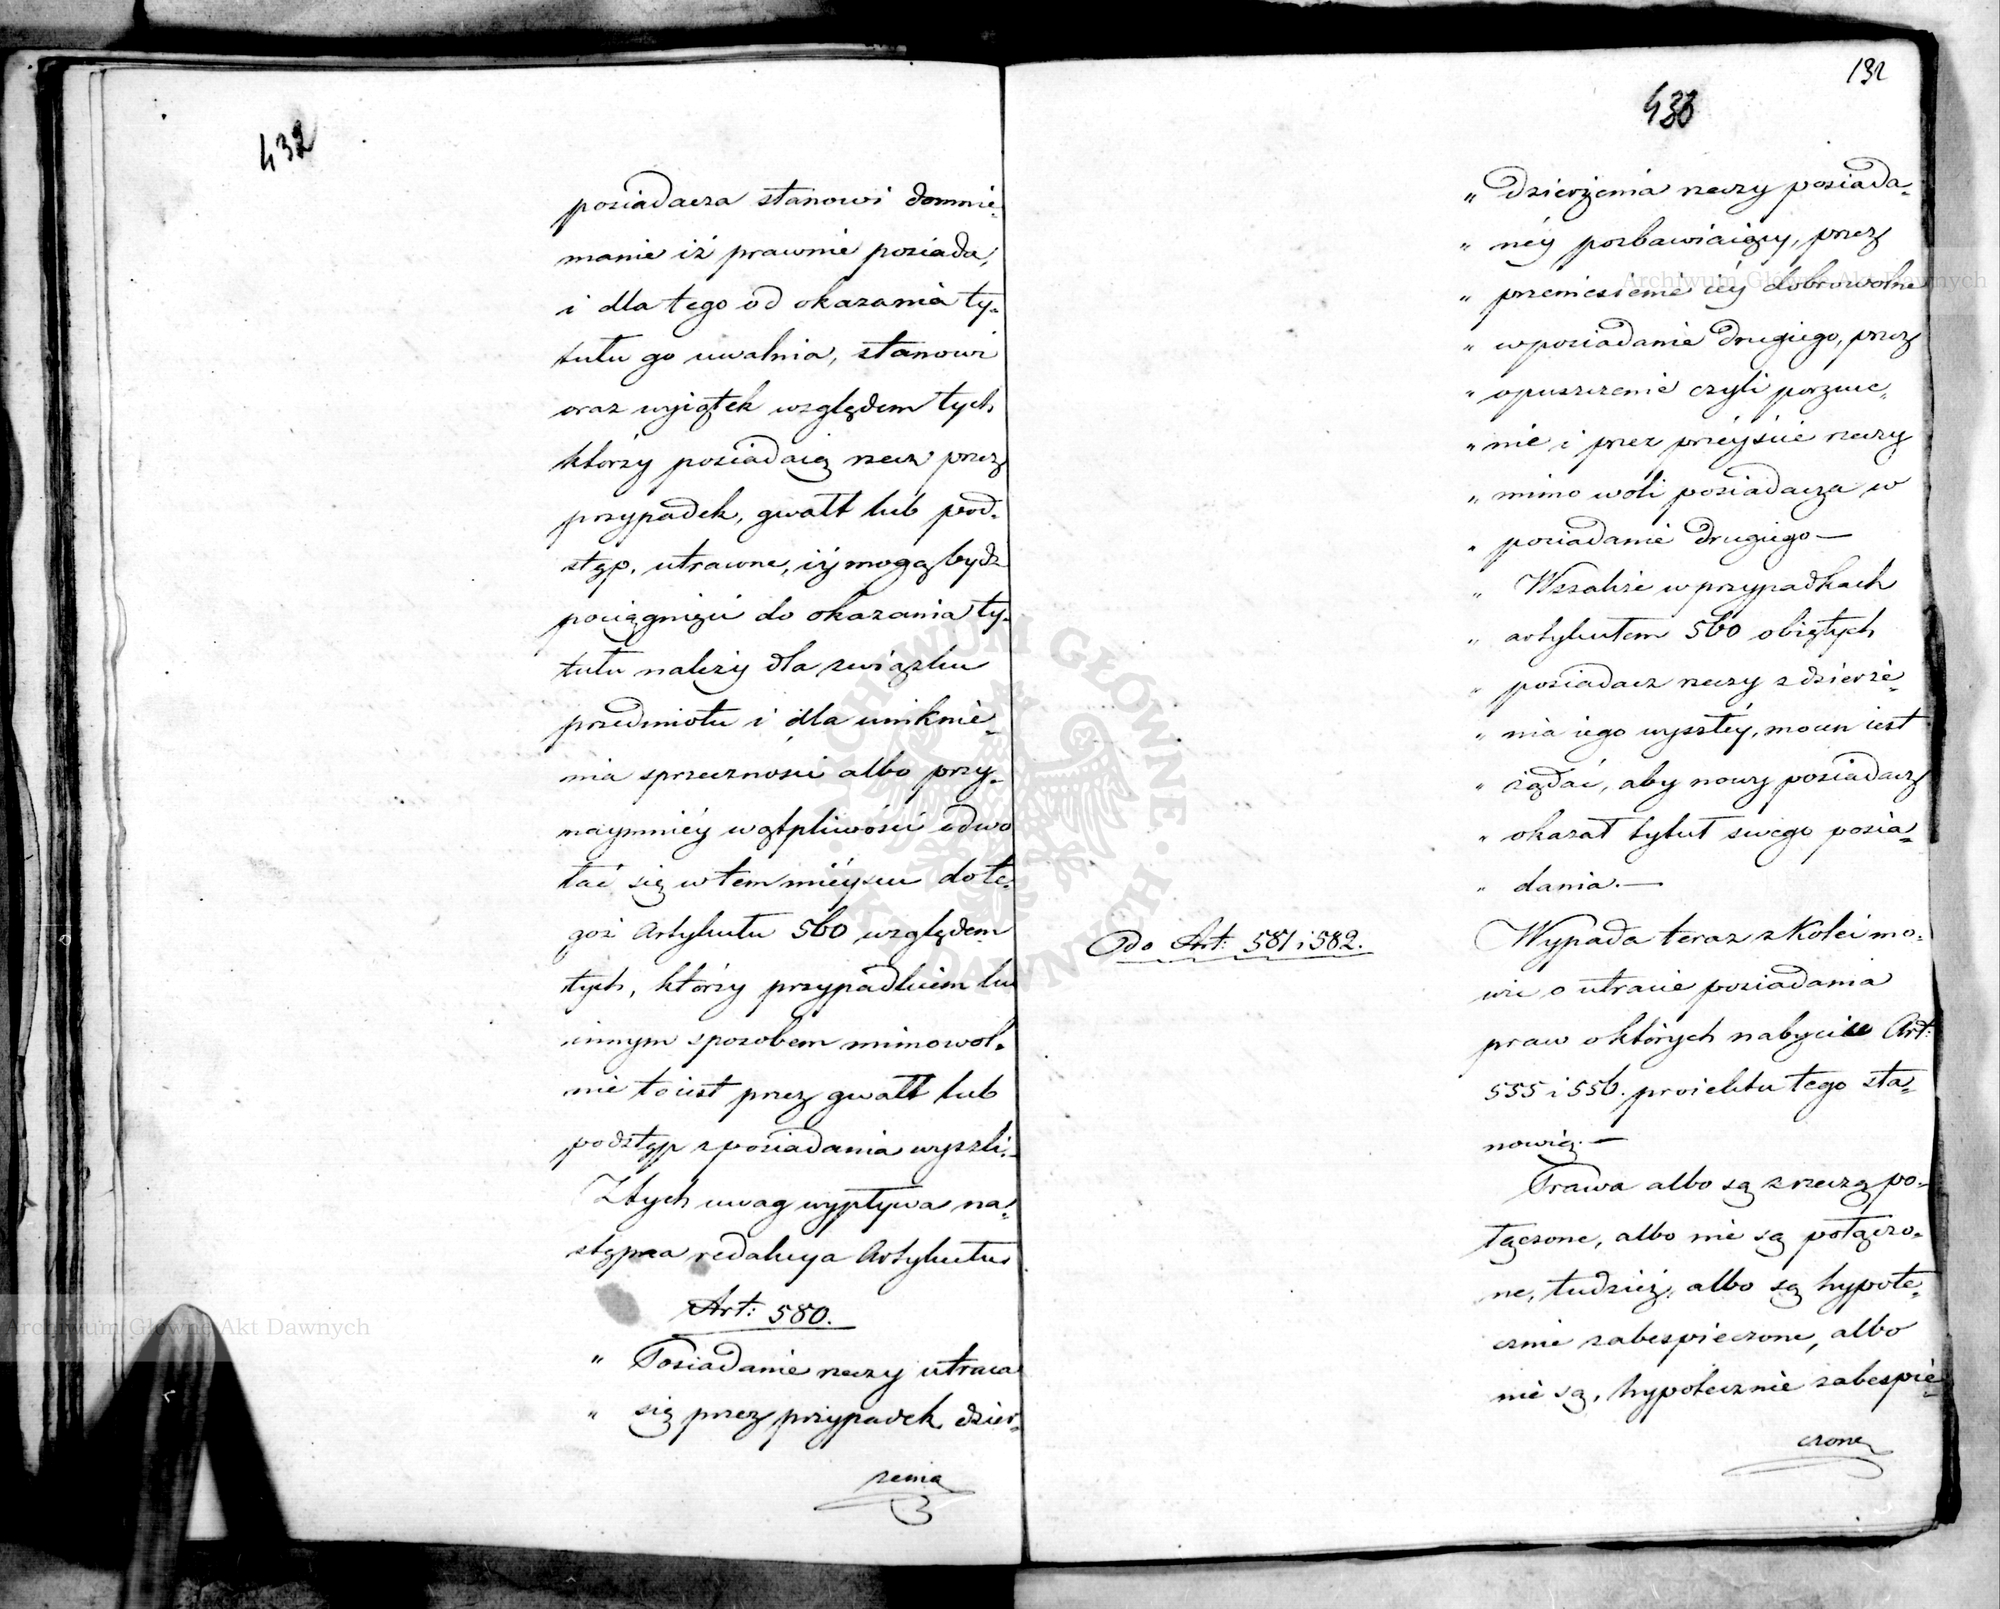 432
posiadacza stanowi domnie„
manie iż prawnie posiada,
i dla tego od okazania ty„
tułu go uwalnia, stanowi
oraz wyiątek względem tych
którzy posiadaią rzecz przez
przypadek, gwałt lub pod„
stęp, utracone, iż mogą bydź
pociągnięci do okazania ty„
tułu należy dla związku
przedmiotu i dla uniknie„
nia sprzeczności albo przy„
naymniéy wątpliwości odwo
łać się w tem miéyscu do te„
goż Artykułu 560 względem
tych, którzy przypadkiem lu
innym sposobem mimowol„
nie to iest przez gwałt lub
podstęp z posiadania wyszli.—
Z tych uwag wypływa na„
stępna redakcya Artykułu
Art: 580.
„ Posiadanie rzeczy utraca
„ się przez przypadek dzier„
żenia
132
433
„ dzierżenia rzeczy posiada„
„ néy pozbawiaiący, przez
„ przeniesienie iéy dobrowolne
„ w posiadanie drugiego, przez
„ opuszczenie czyli porzuce„
„ nie i przez przéyście rzeczy
„ mimo woli posiadacza w
„ posiadanie drugiego —
„ Wszakże w przypadkach
„ artykułem 560 obiętych
„ posiadacz rzeczy z dzierże„
„ nia iego wyszłéy, mocen iest
„ żądać, aby nowy posiadacz
„ okazał tytuł swego posia„
„ dania.—
Do Art: 581 i 582.
Wypada teraz z kolei mo„
wić o utracie posiadania
praw o których nabyciu Art:
555 i 556. proiektu tego sta„
nowią.—
Prawa albo są z rzeczą po„
łączone, albo nie są połączo„
ne, tudzież, albo są hypote„
cznie zabespieczone, albo
nie są, hypotecznie zabespie„
czone